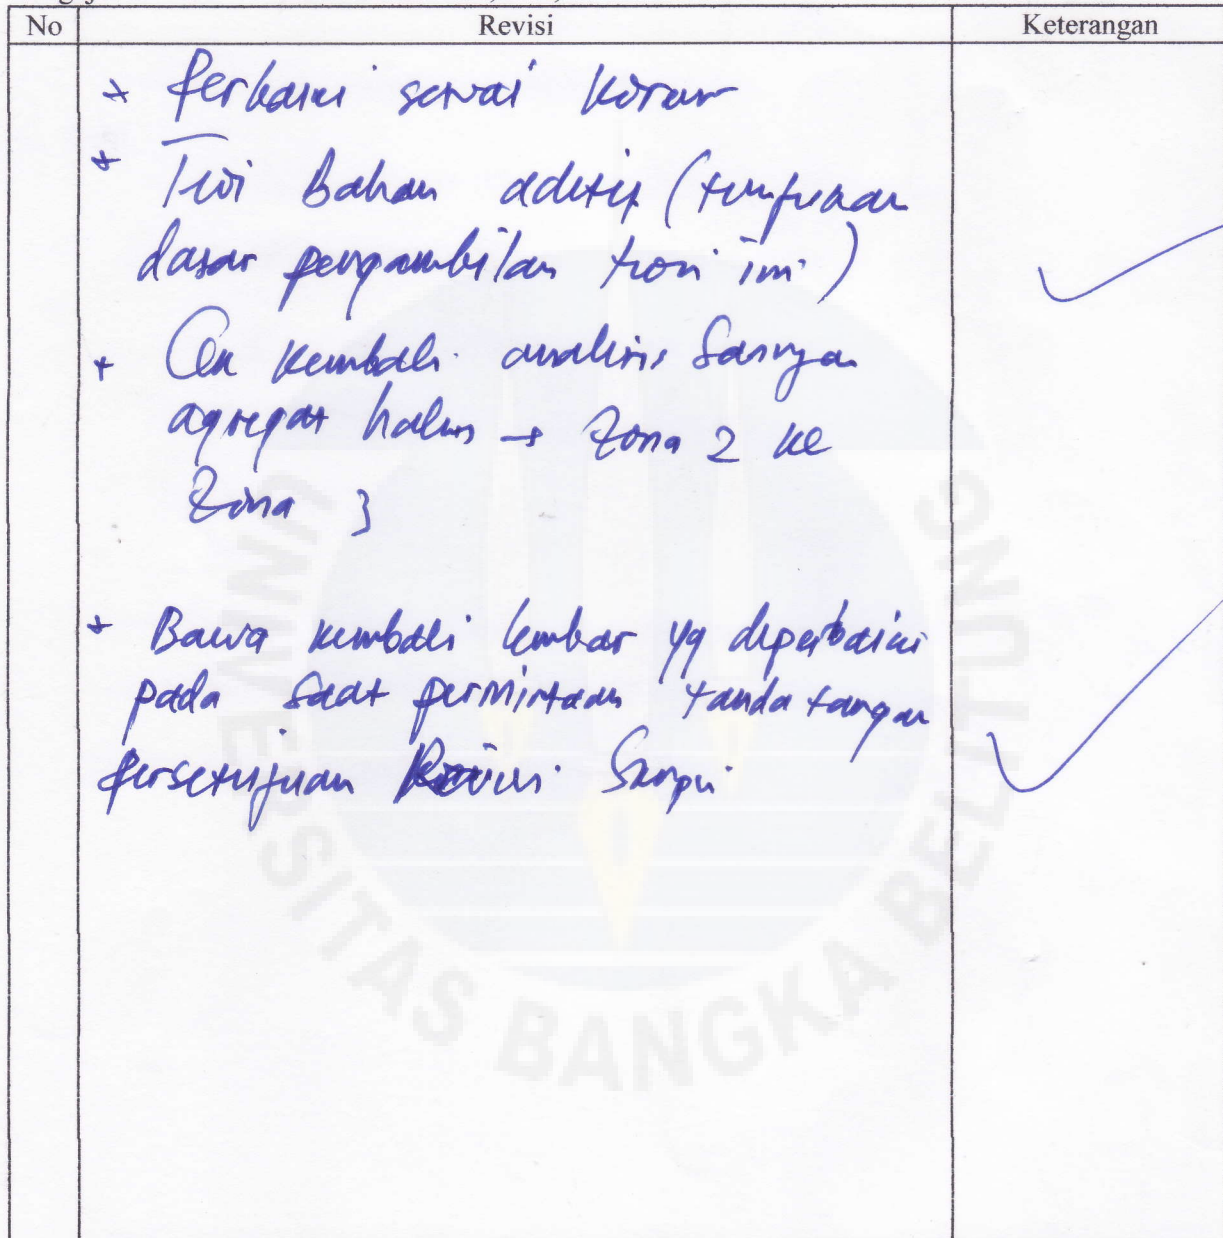 No Revisi Keterangan
+ Perbaiki sesuai koreksi
+ Teori Bahan aditif (tunjukkan
dasar pengambilan teori ini)
+ Cek kembali analisis saringan
agregat halus → Zona 2 ke
Zona 3
+ Bawa kembali lembar yg diperbaiki
pada saat permintaan tanda tangan
persetujuan Revisi Skripsi
UNIVERSITAS BANGKA BELITUNG